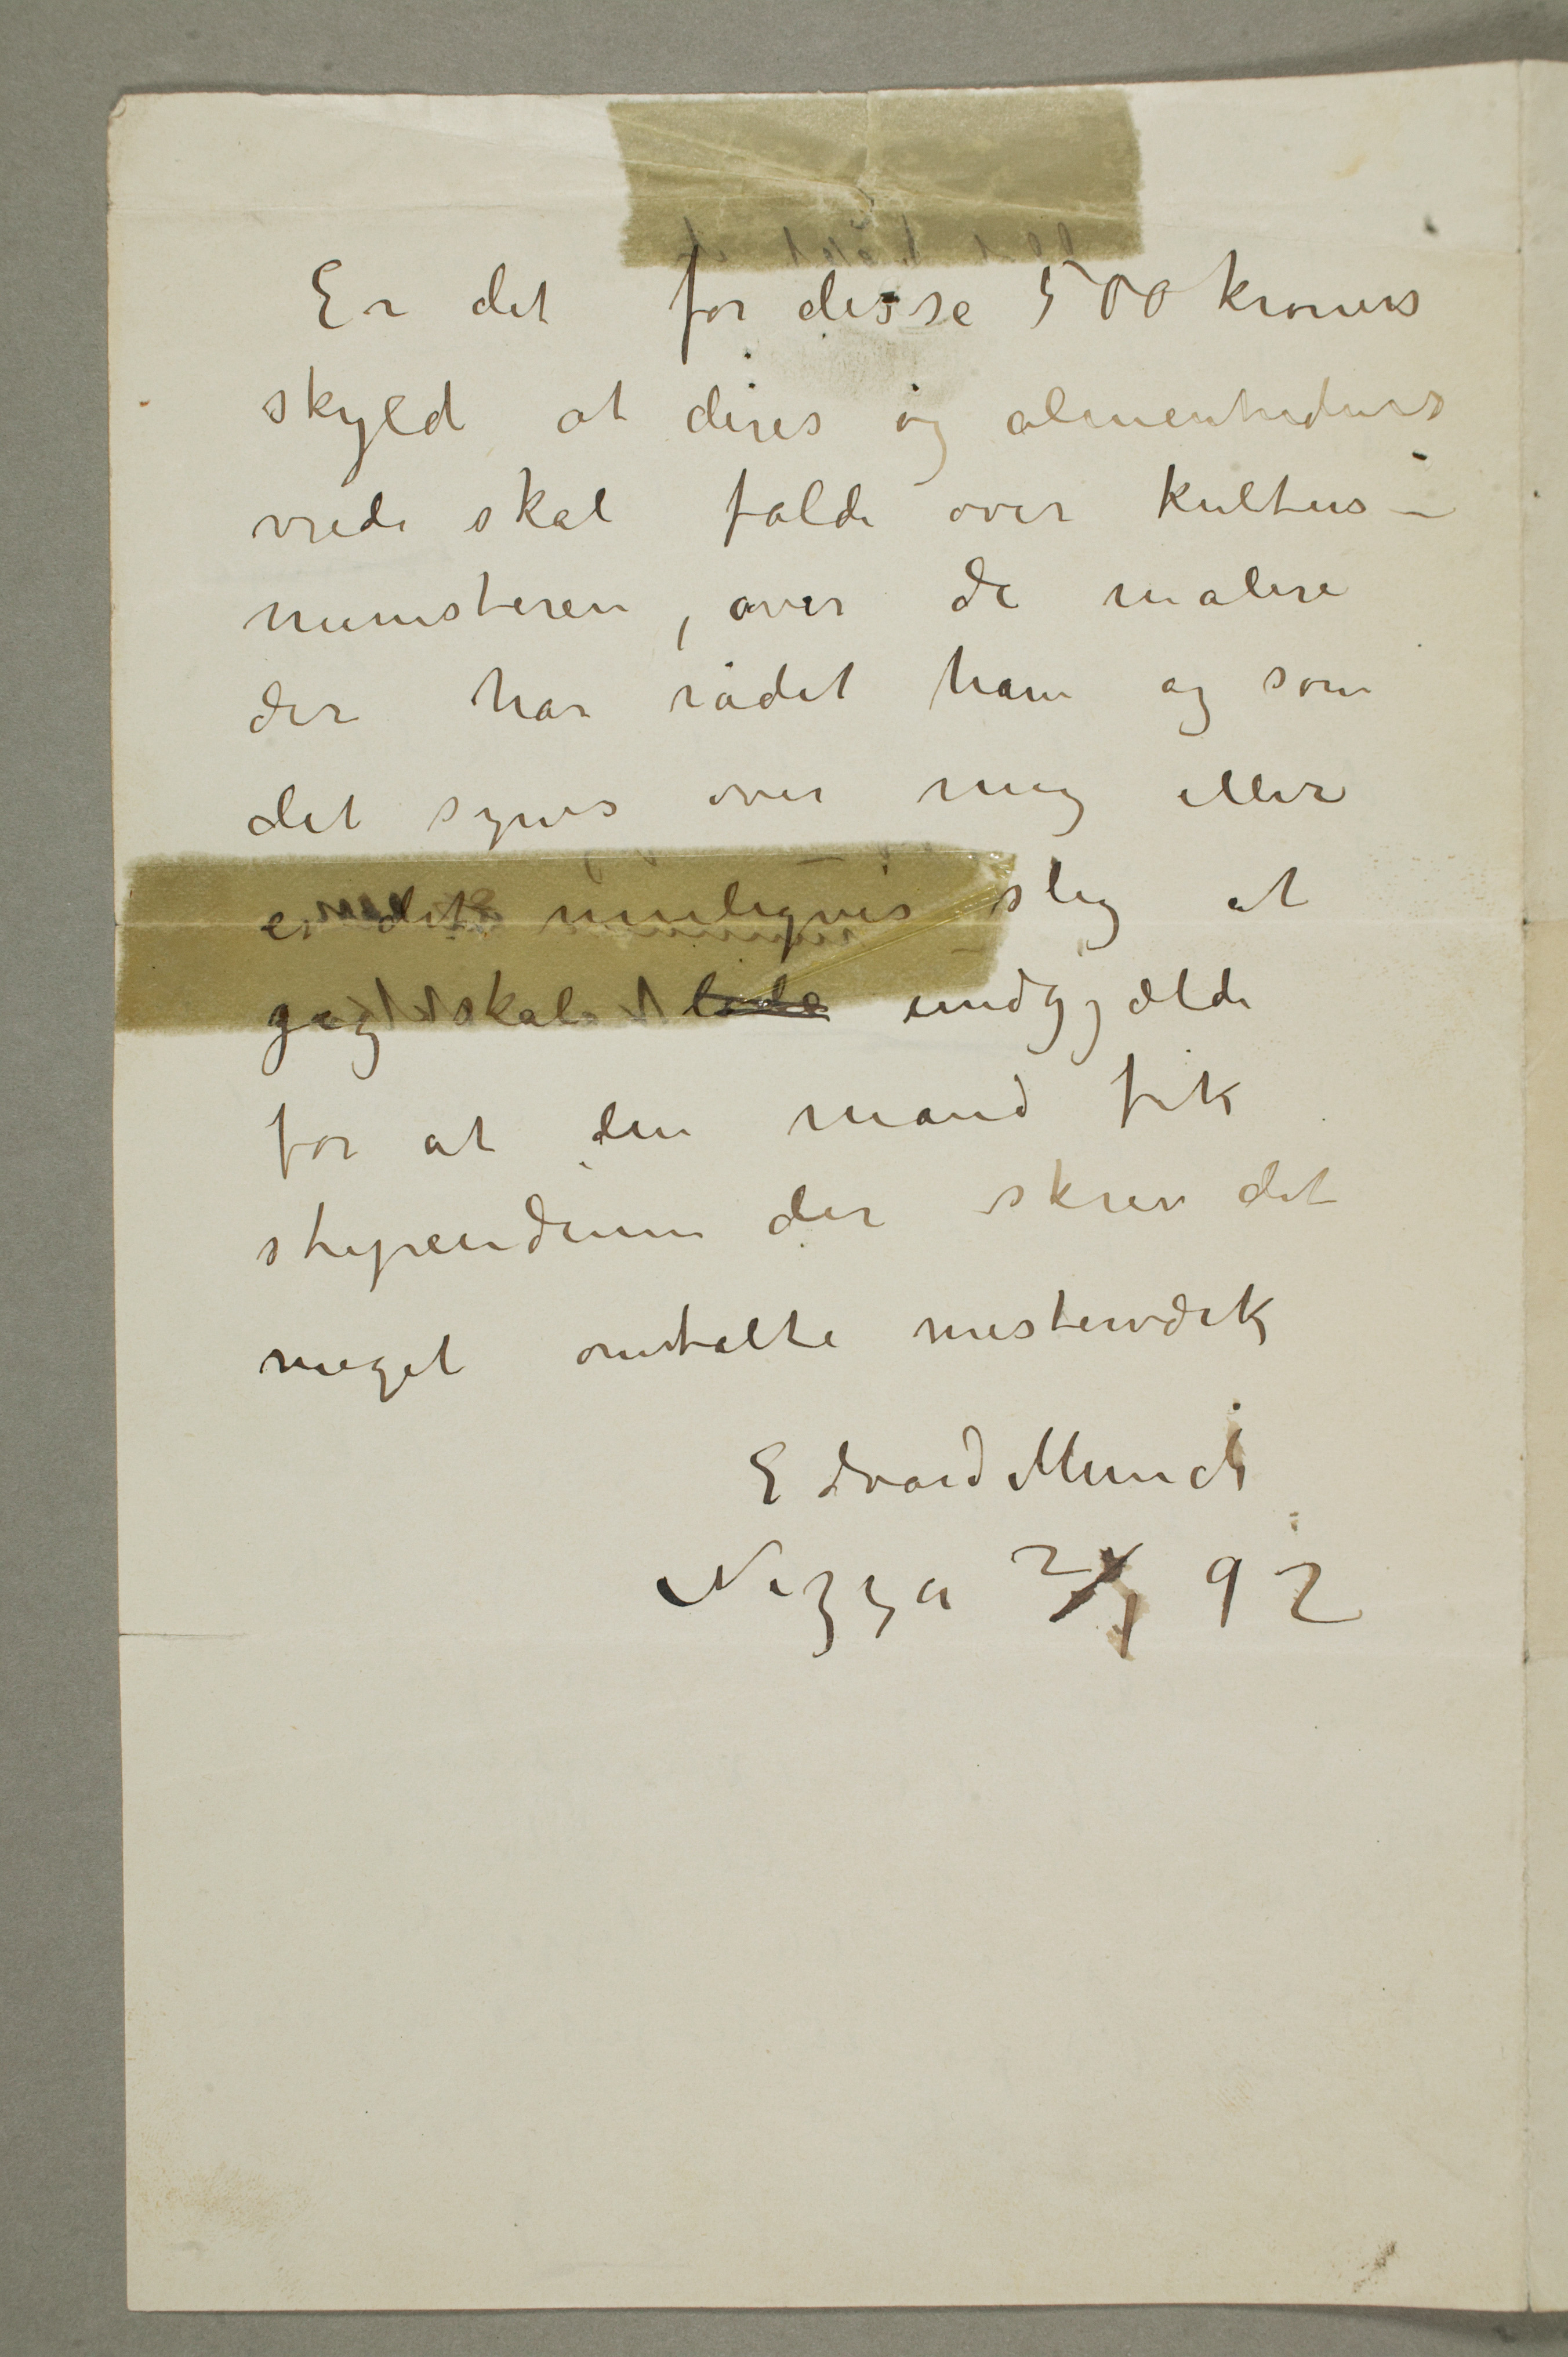 Er det for disse 500 kroners
skyld at deres og almenhedens
vrede skal falde over kultus–
ministeren, over de malere
der har rådet ham og som
det synes over mig eller
er det muligvis slig at
jeg skal lide undgjælde
for at den mand fik
stipendium der skrev det
meget omtalte mesterværk
Edvard Munch
Nizza 92